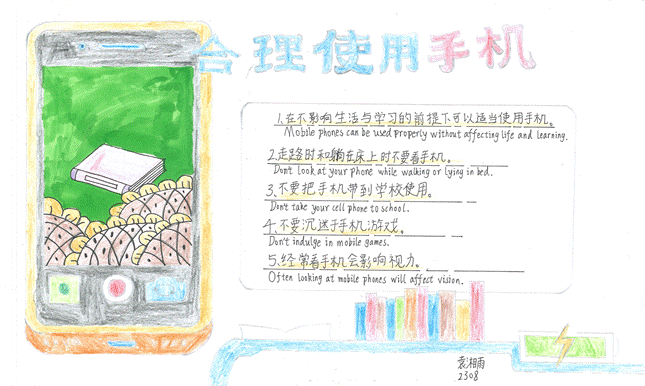 合理使用手机
1.在不影响生活与学习的前提下可以适当使用手机。
Mobile phones can be used properly without affecting life and learning.
2.走路时和躺在床上时不要看手机。
Don't look at your phone while walking or lying in bed.
3.不要把手机带到学校使用。
Don't take your cell phone to school.
4.不要沉迷于手机游戏。
Don't indulge in mobile games.
5.经常看手机会影响视力。
Often looking at mobile phones will affect vision.
袁湘雨
2308